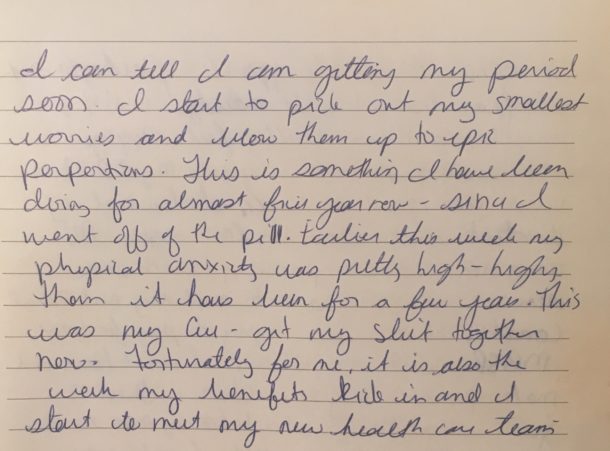 I can tell I am getting my period
soon. I start to pick out my smallest
worries and blow them up to epic
perportions. This is something I have been
doing for almost five year now - since I
went off of the pill. Earlier this week my
physical anxiety was pretty high - higher
then it has been for a few years. This
was my cue - get my shit together
now. Fortunately for me, it is also the
week my benefits kick in and I
start to meet my new health care team